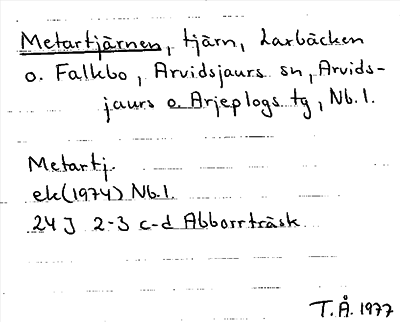 Metartjärnen, tjärn, Laxbäcken
o. Falkbo, Arvidsjaurs sn, Arvids-
jaurs o. Arjeplogs tg, Nb.l.
Metartj.
ek(1974) Nb.l.
24J 2-3 c-d Abborrträsk
T.Å. 1977